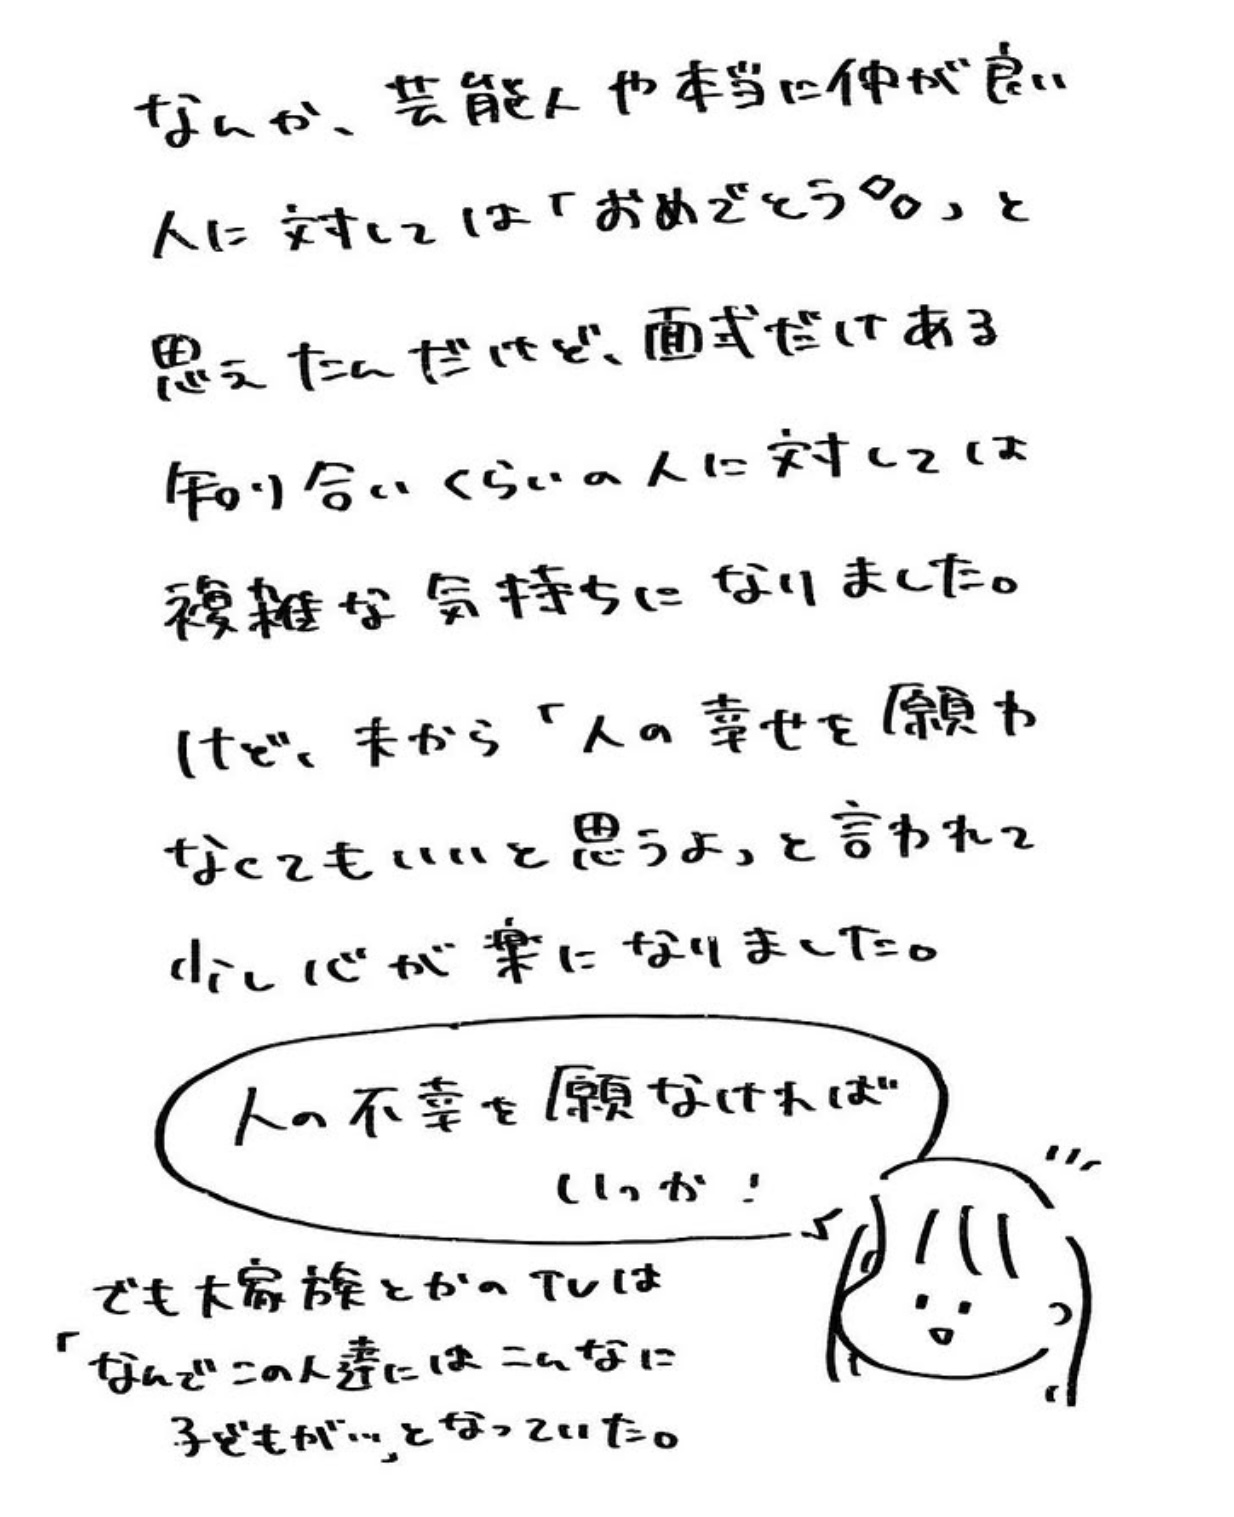 なんか、芸能人や本当に仲が良い
人に対しては「おめでとう」と
思えたんだけど、面式だけある
知り合いくらいの人に対しては
複雑な気持ちになりました。
けど、夫から「人の幸せを願わ
なくてもいいと思うよ」と言われて
少し心が楽になりました。
人の不幸を願なければ
いっか!
でも大家族とかのTVは
「なんでこの人達にはこんなに
子どもが…」となっていた。